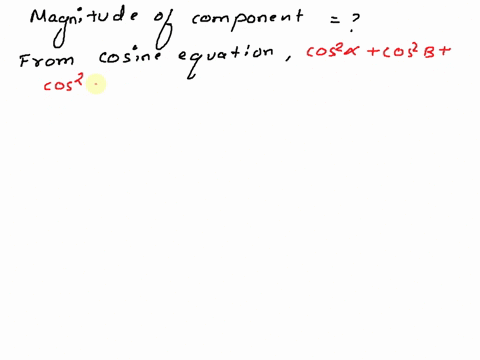 Magnitude of component = ?
From cosine equation, cos²α + cos²B +
cos²